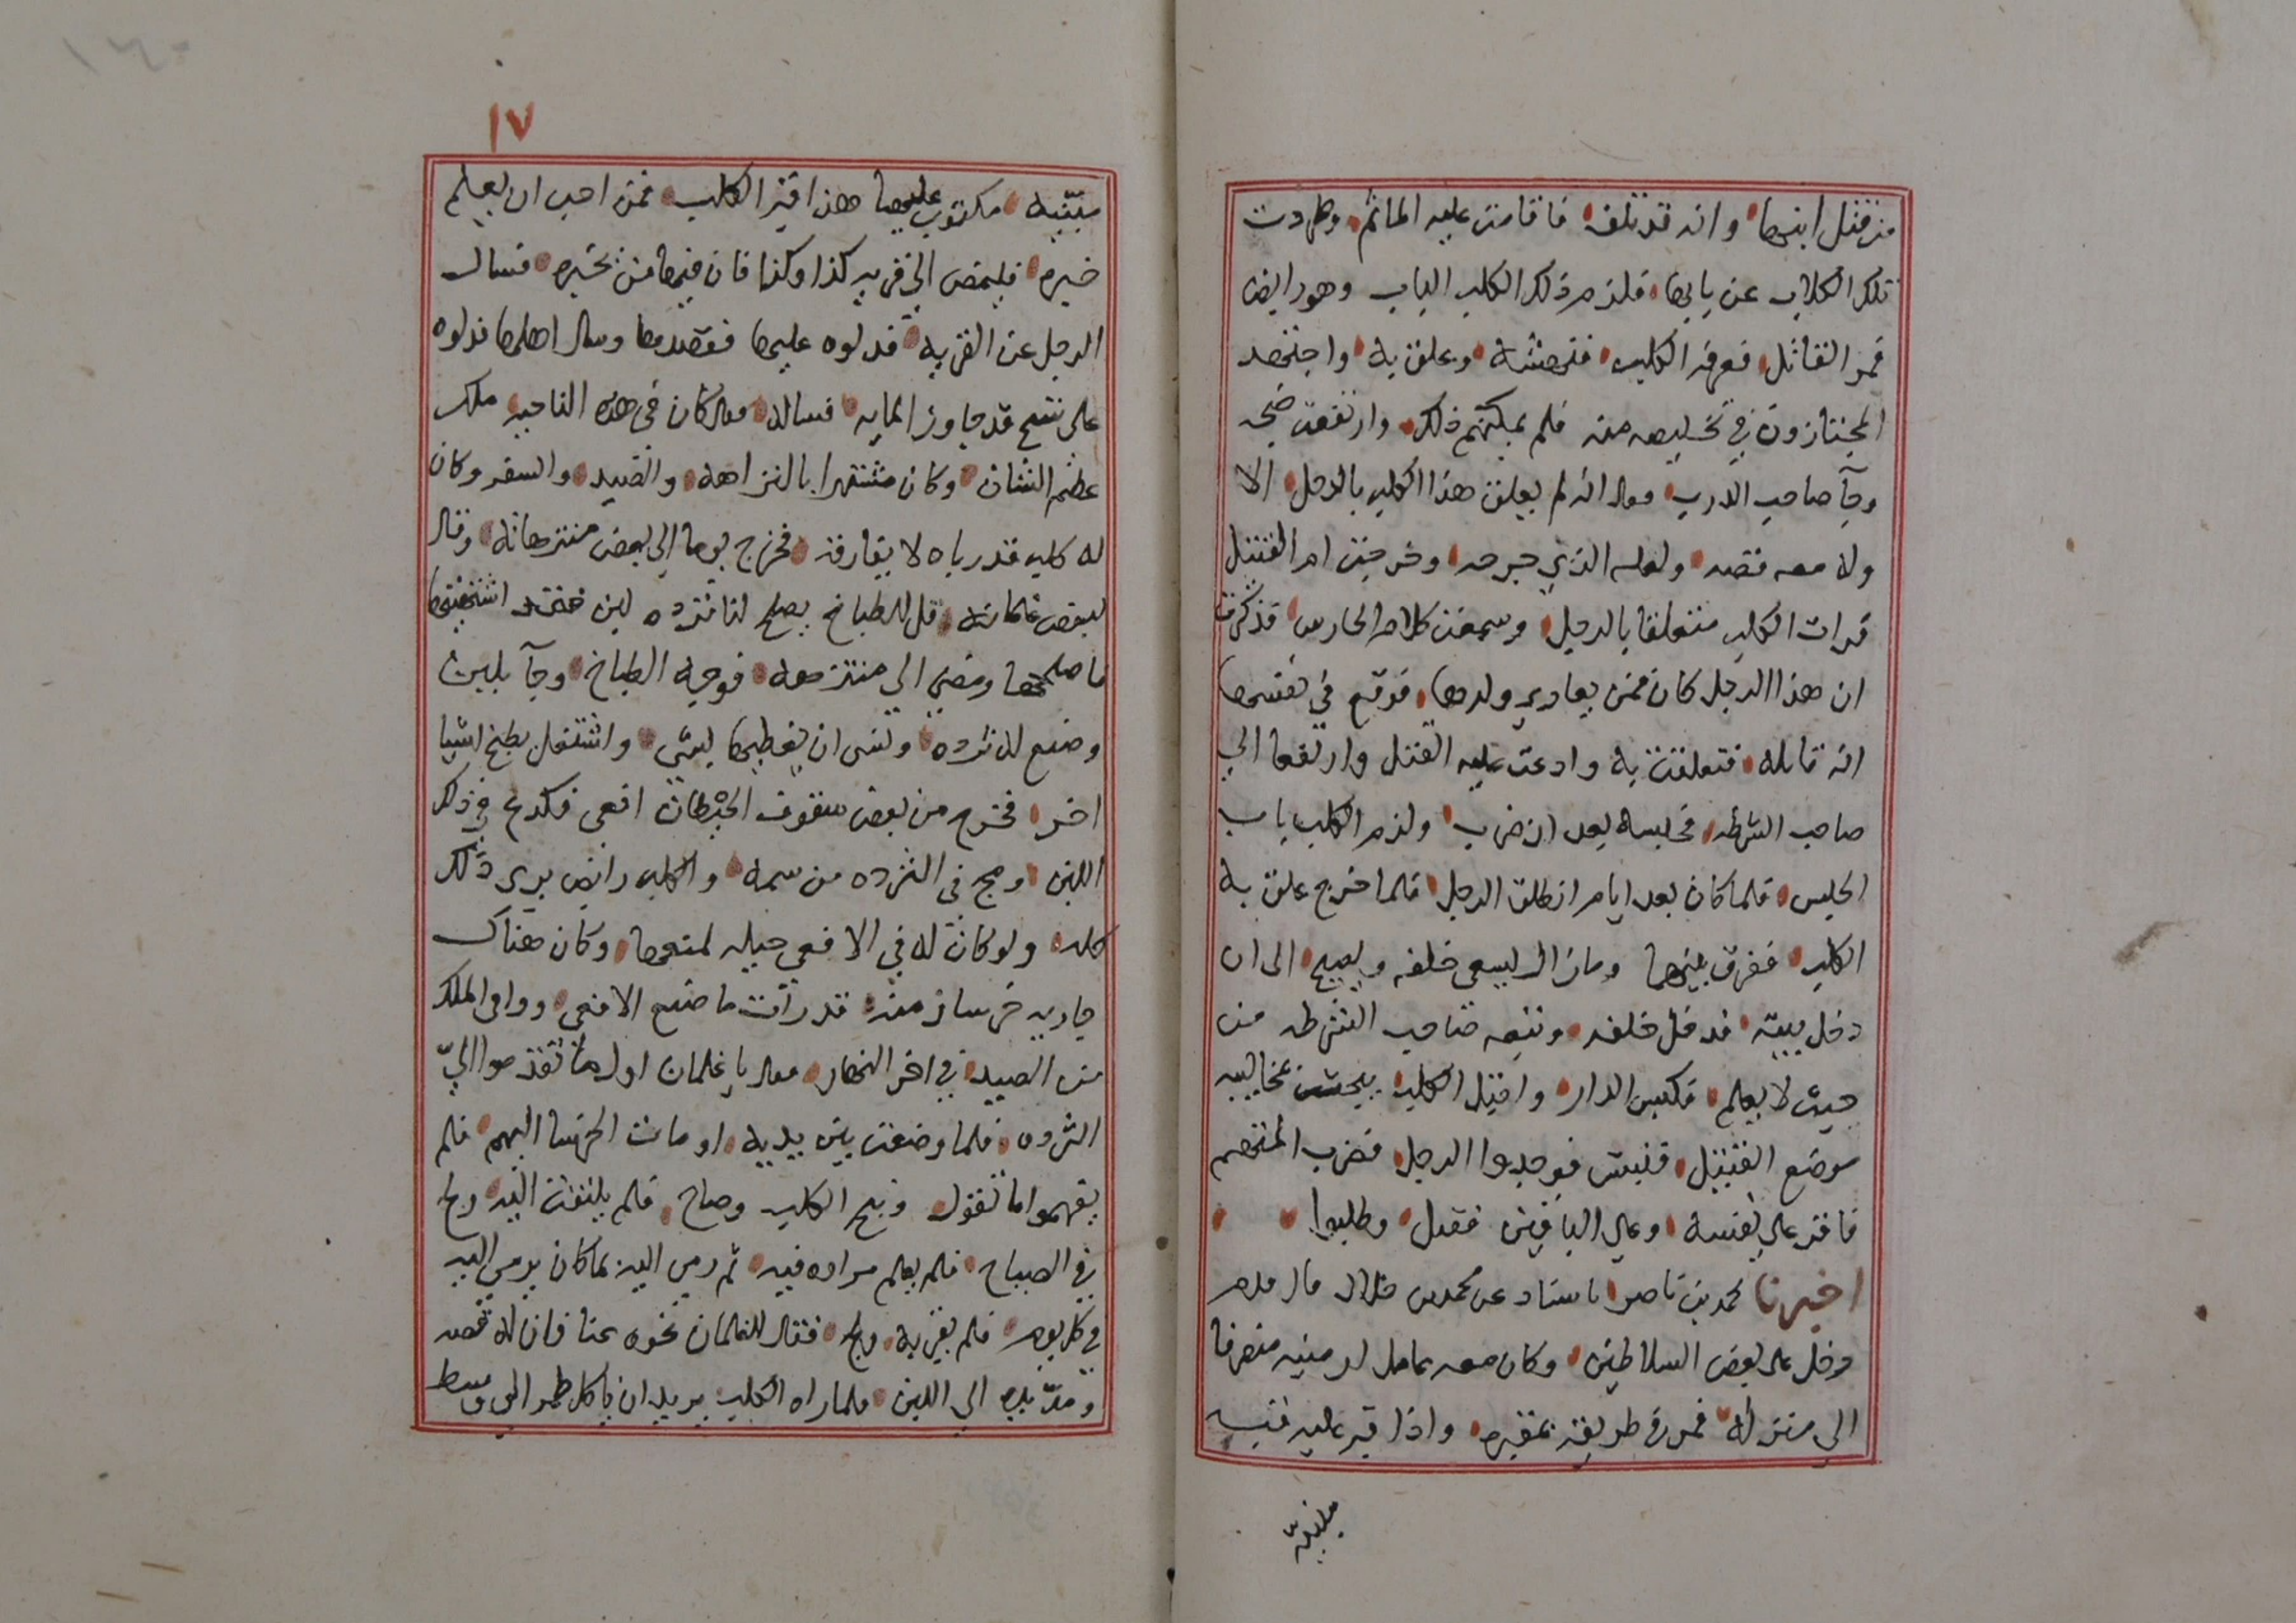 من قتل ابنها وانه قد تلف فاقامت عليه الماتم وطردت
تلك الكلاب عن بابها فلزم ذلك الكلب الباب وهو رابض
فمر القاتل فعرفه الكلب فنهشه وعلق به واجتهد
المجتازون في تخليصه منه فلم يمكنهم ذلك وارتفعت ضجه
وجآ صاحب الدرب فقال انه لم يعلق هذا الكلب بالرجل الا
ولا معه قصه ولعله الذي جرحه وخرجت ام القتيل
فرات الكلب متعلقا بالرجل وسمعت كلام الحارس فذكرت
ان هذا الرجل كان ممن يعادي ولدها فوقع في نفسها
انه قاتله فتعلقت به وادعت عليه القتل وارتفعا الي
صاحب الشرطه فحبسه بعد ان ضرب ولزم الكلب باب
الحبس فلما كان بعد ايام انطلق الرجل فلما خرج علق به
الكلب ففرق بينهما وما زال يسعي خلفه ويصيح الى ان
دخل بيته فدخل خلفه وتبعه صاحب الشرطه من
حيث لا يعلم فكبس الدار واقبل الكلب يبحث بمخالبه
موضع القتيل فنبش فوجدوا الرجل فضرب المتهم
فاقر على نفسه وعلي الباقين فقتل وطلبوا
اخبرنا محمد بن ناصر باسناد عن محمد بن خلاد قال قدم
رجل على بعض السلاطين وكان معه عامل ارمنيه منصرفا
الى منزله فمر في طريقه بمقبره واذا قبر عليه قبه
مبنيه
١٧
مبنيه مكتوب عليها هذا قبر الكلب فمن احب ان يعلم
خبره فليمض الي قريه كذا وكذا فان فيها من يخبره فسال
الرجل عن القريه فدلوه عليها فقصدها وسال اهلها فدلوه
على شيخ قد جاوز المايه فساله فقال كان في هذه الناحيه ملك
عظيم الشان وكان مشتهرا بالنزاهه والصيد والسفر وكان
له كلب قد رباه لا يفارقه فخرج يوما الي بعض منتزهاته وقال
لبعض غلمانه قل للطباخ يصلح لنا ثرده لبن فقد اشتهيتها
فاصلحها ومضي الي منتزهه فوجه الطباخ وجآ بلبن
وصنع له ثرده ونسى ان يغطيها بشي واشتغل بطبخ اشيا
اخر فخرج من بعض سقوف الحيطان افعى فكرع في ذلك
اللبن ومج فى الثرده من سمه والكلب رابض يرى ذلك
كله ولو كان له في الافعي حيله لمنعها وكان هناك
جاريه خرسا زمنه قد رأت ما صنع الافعي ووافى الملك
من الصيد في اخر النهار فقال يا غلمان اول ما تقدموا اليّ
الثرده فلما وضعت بين يديه اومات الخرسا اليهم فلم
يفهموا ما تقول ونبح الكلب وصاح فلم يلتفت اليه ولج
في الصياح فلم يعلم مراده فيه ثم رمى اليه بما كان يرمي اليه
في كل يوم فلم يقربه ولج فقال للغلمان نحوه عنا فان له قصه
ومدّ يده الى اللبن فلما راه الكلب يريد ان ياكل طمر الى وسط